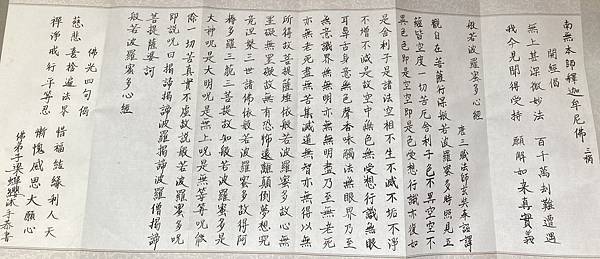 南無本師釋迦牟尼佛 三稱
開經偈
無上甚深微妙法 百千萬劫難遭遇
我今見聞得受持 願解如來真實義
般若波羅蜜多心經
唐三藏法師玄奘奉詔譯
觀自在菩薩行深般若波羅蜜多時照見五
蘊皆空度一切苦厄舍利子色不異空空不
異色色即是空空即是色受想行識亦復如
是舍利子是諸法空相不生不滅不垢不淨
不增不減是故空中無色無受想行識無眼
耳鼻舌身意無色聲香味觸法無眼界乃至
無意識界無無明亦無無明盡乃至無老死
亦無老死盡無苦集滅道無智亦無得以無
所得故菩提薩埵依般若波羅蜜多故心無
罣礙無罣礙故無有恐怖遠離顛倒夢想究
竟涅槃三世諸佛依般若波羅蜜多故得阿
耨多羅三藐三菩提故知般若波羅蜜多是
大神咒是大明咒是無上咒是無等等咒能
除一切苦真實不虛故說般若波羅蜜多咒
即說咒曰揭諦揭諦波羅揭諦波羅僧揭諦
菩提薩婆訶
般若波羅蜜多心經
佛光四句偈
慈悲喜捨遍法界 惜福結緣利人天
禪淨戒行平等忍 慚愧感恩大願心
佛弟子